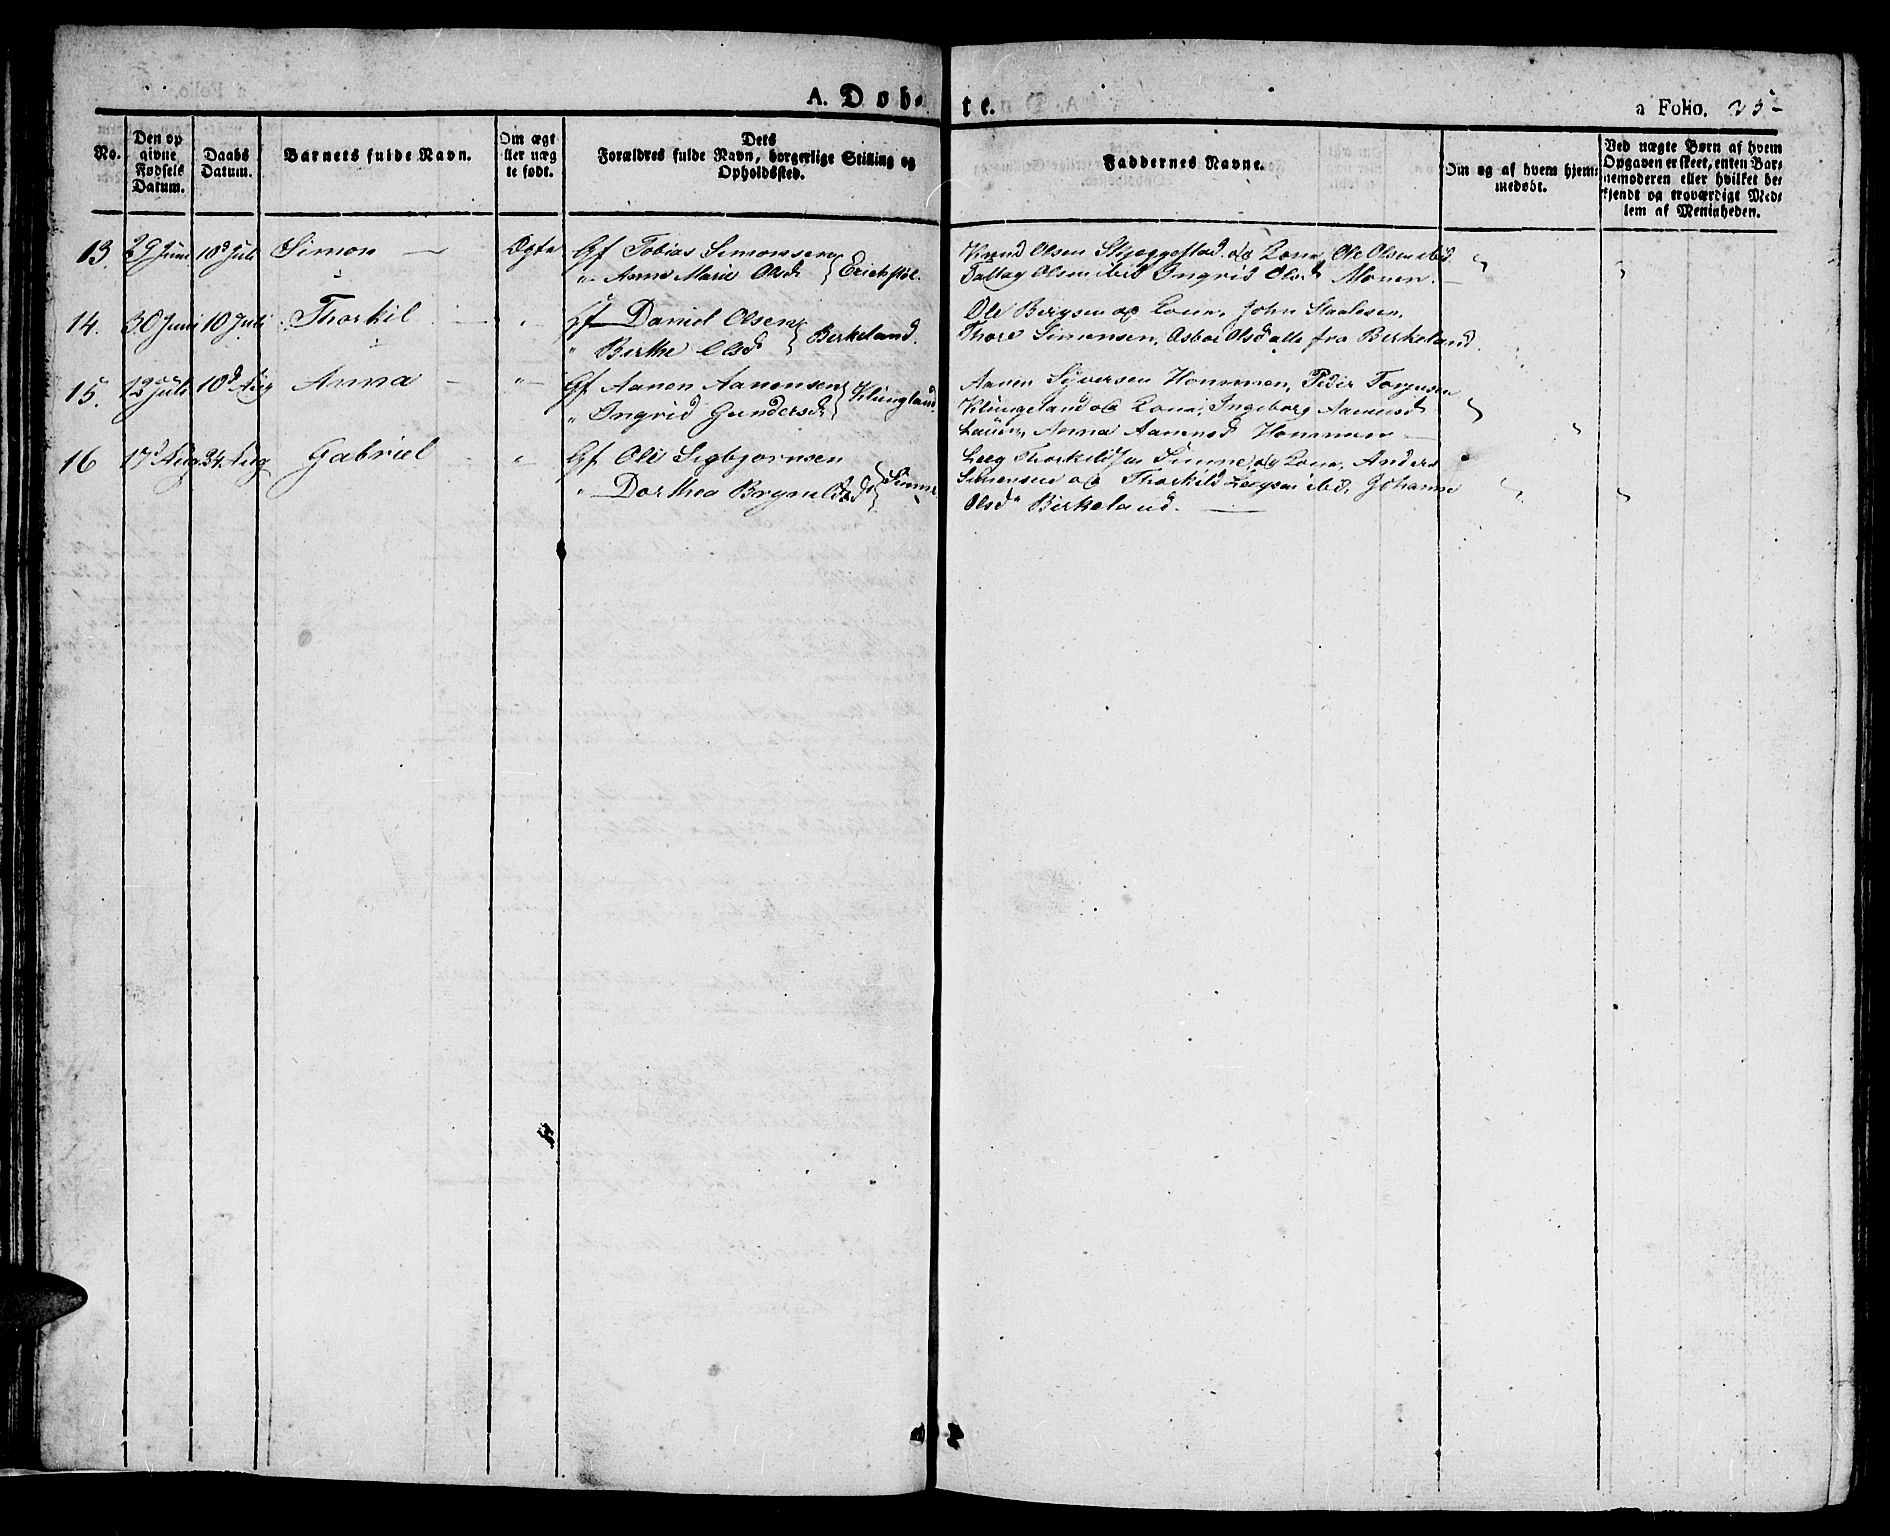 A. Døbte.
a Folio. 35
No.
Den opgivne Fødsels Datum.
Daabs Datum.
Barnets fulde Navn.
Om ægte eller uægte født.
Dets Forældres fulde Navn, borgerlige Stilling og Opholdssted.
Faddernes Navne.
Om og af hvem hjemmedøbt.
Ved uægte Børn af hvem Opgaven er skeet, enten Barnemoderen eller hvilket bekjendt og troværdigt Medlem af Menigheden.
13. 29 Juni 10d Juli Simon Ægte Gf Tobias Simonsen
" Anna Marie Olsd } Erichstøl.
Knud Olsen Skjeggestad og Kone, Ole Olsen ibid
Dallag Olsen ibid Ingrid Olsd Monen.
14. 30 Juni 10 Juli Thorkil " Gf Daniel Olsen
" Birthe Olsd } Birkeland.
Ole Bergsen og Kone, John Staalesen,
Thore Simonsen, Asbor Olsd alle fra Birkeland.
15. 12 Juli 10d Aug Anna " Gf Aanen Aanensen
" Ingrid Gundersd } Klungland.
Aanen Syversen Hommen, Peder Torgusen
Klungeland og Kone, Ingeborg Aanensd
Anna Aanensd Hommen
16 17d Aug 24 Aug Gabriel " Gf Ole Sigbjørnsen
" Dorthea Brynildsd } Simne
Thorkildsen Simne og Kone, Anders
Simonsen og Thorkild ibid, Johanne
Olsd Birkeland.